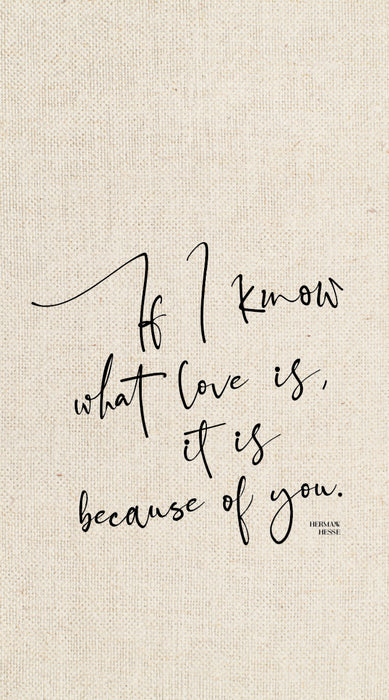 If I know
what love is,
it is
because of you.
HERMANN
HESSE